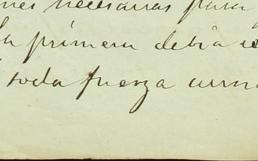 necesarias para
la primera debia
toda fuerza